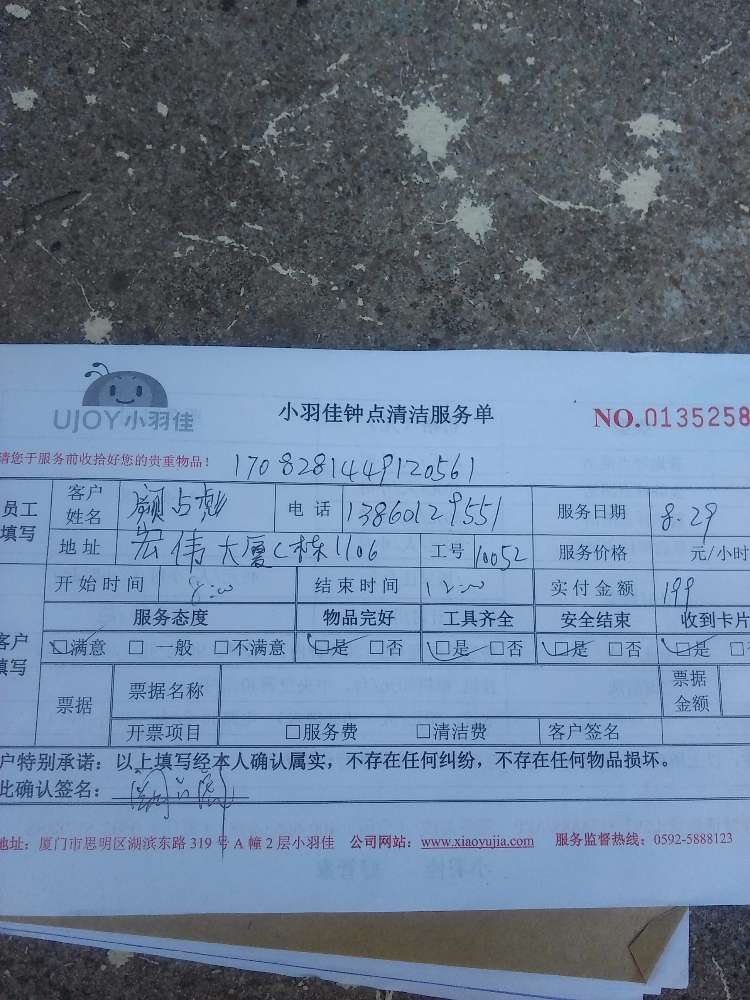 UJOY小羽佳 小羽佳钟点清洁服务单 NO.0135258
请您于服务前收拾好您的贵重物品! 1708281449120561
员工填写 客户姓名 颜占彪 电话 13860129551 服务日期 8.29
地址 宏伟大厦C栋1106 工号 10052 服务价格 元/小时
开始时间 8:00 结束时间 12:00 实付金额 199
客户填写 服务态度 物品完好 工具齐全 安全结束 收到卡片
□满意 □一般 □不满意 □是 □否 □是 □否 □是 □否 □是
票据 票据名称 票据金额
开票项目 □服务费 □清洁费 客户签名
户特别承诺:以上填写经本人确认属实,不存在任何纠纷,不存在任何物品损坏。
此确认签名:
地址:厦门市思明区湖滨东路319号A幢2层小羽佳 公司网站:www.xiaoyujia.com 服务监督热线:0592-5888123